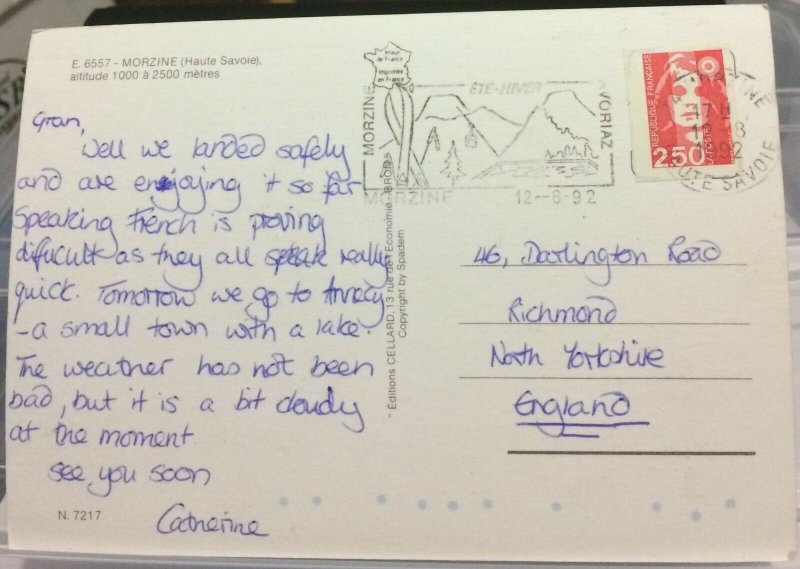 E. 6557 - MORZINE (Haute Savoie),
altitude 1000 à 2500 mètres
Gran,
Well we landed safely
and are enjoying it so far
Speaking French is proving
difficult as they all speak really
quick. Tomorrow we go to Annecy
- a small town with a lake.
The weather has not been
bad, but it is a bit cloudy
at the moment
See you soon
Catherine
N. 7217
Image
de France
Imprimée
en France
" Éditions CELLARD, 13 rue de l'Economie - BRON
Copyright by Spadem
MORZINE
ÉTÉ-HIVER
AVORIAZ
MORZINE 12--8-92
RÉPUBLIQUE FRANÇAISE
2,50
LA POSTE
74 MORZINE
17H
12-8
1992
HAUTE SAVOIE
46, Darlington Road
Richmond
North Yorkshire
England